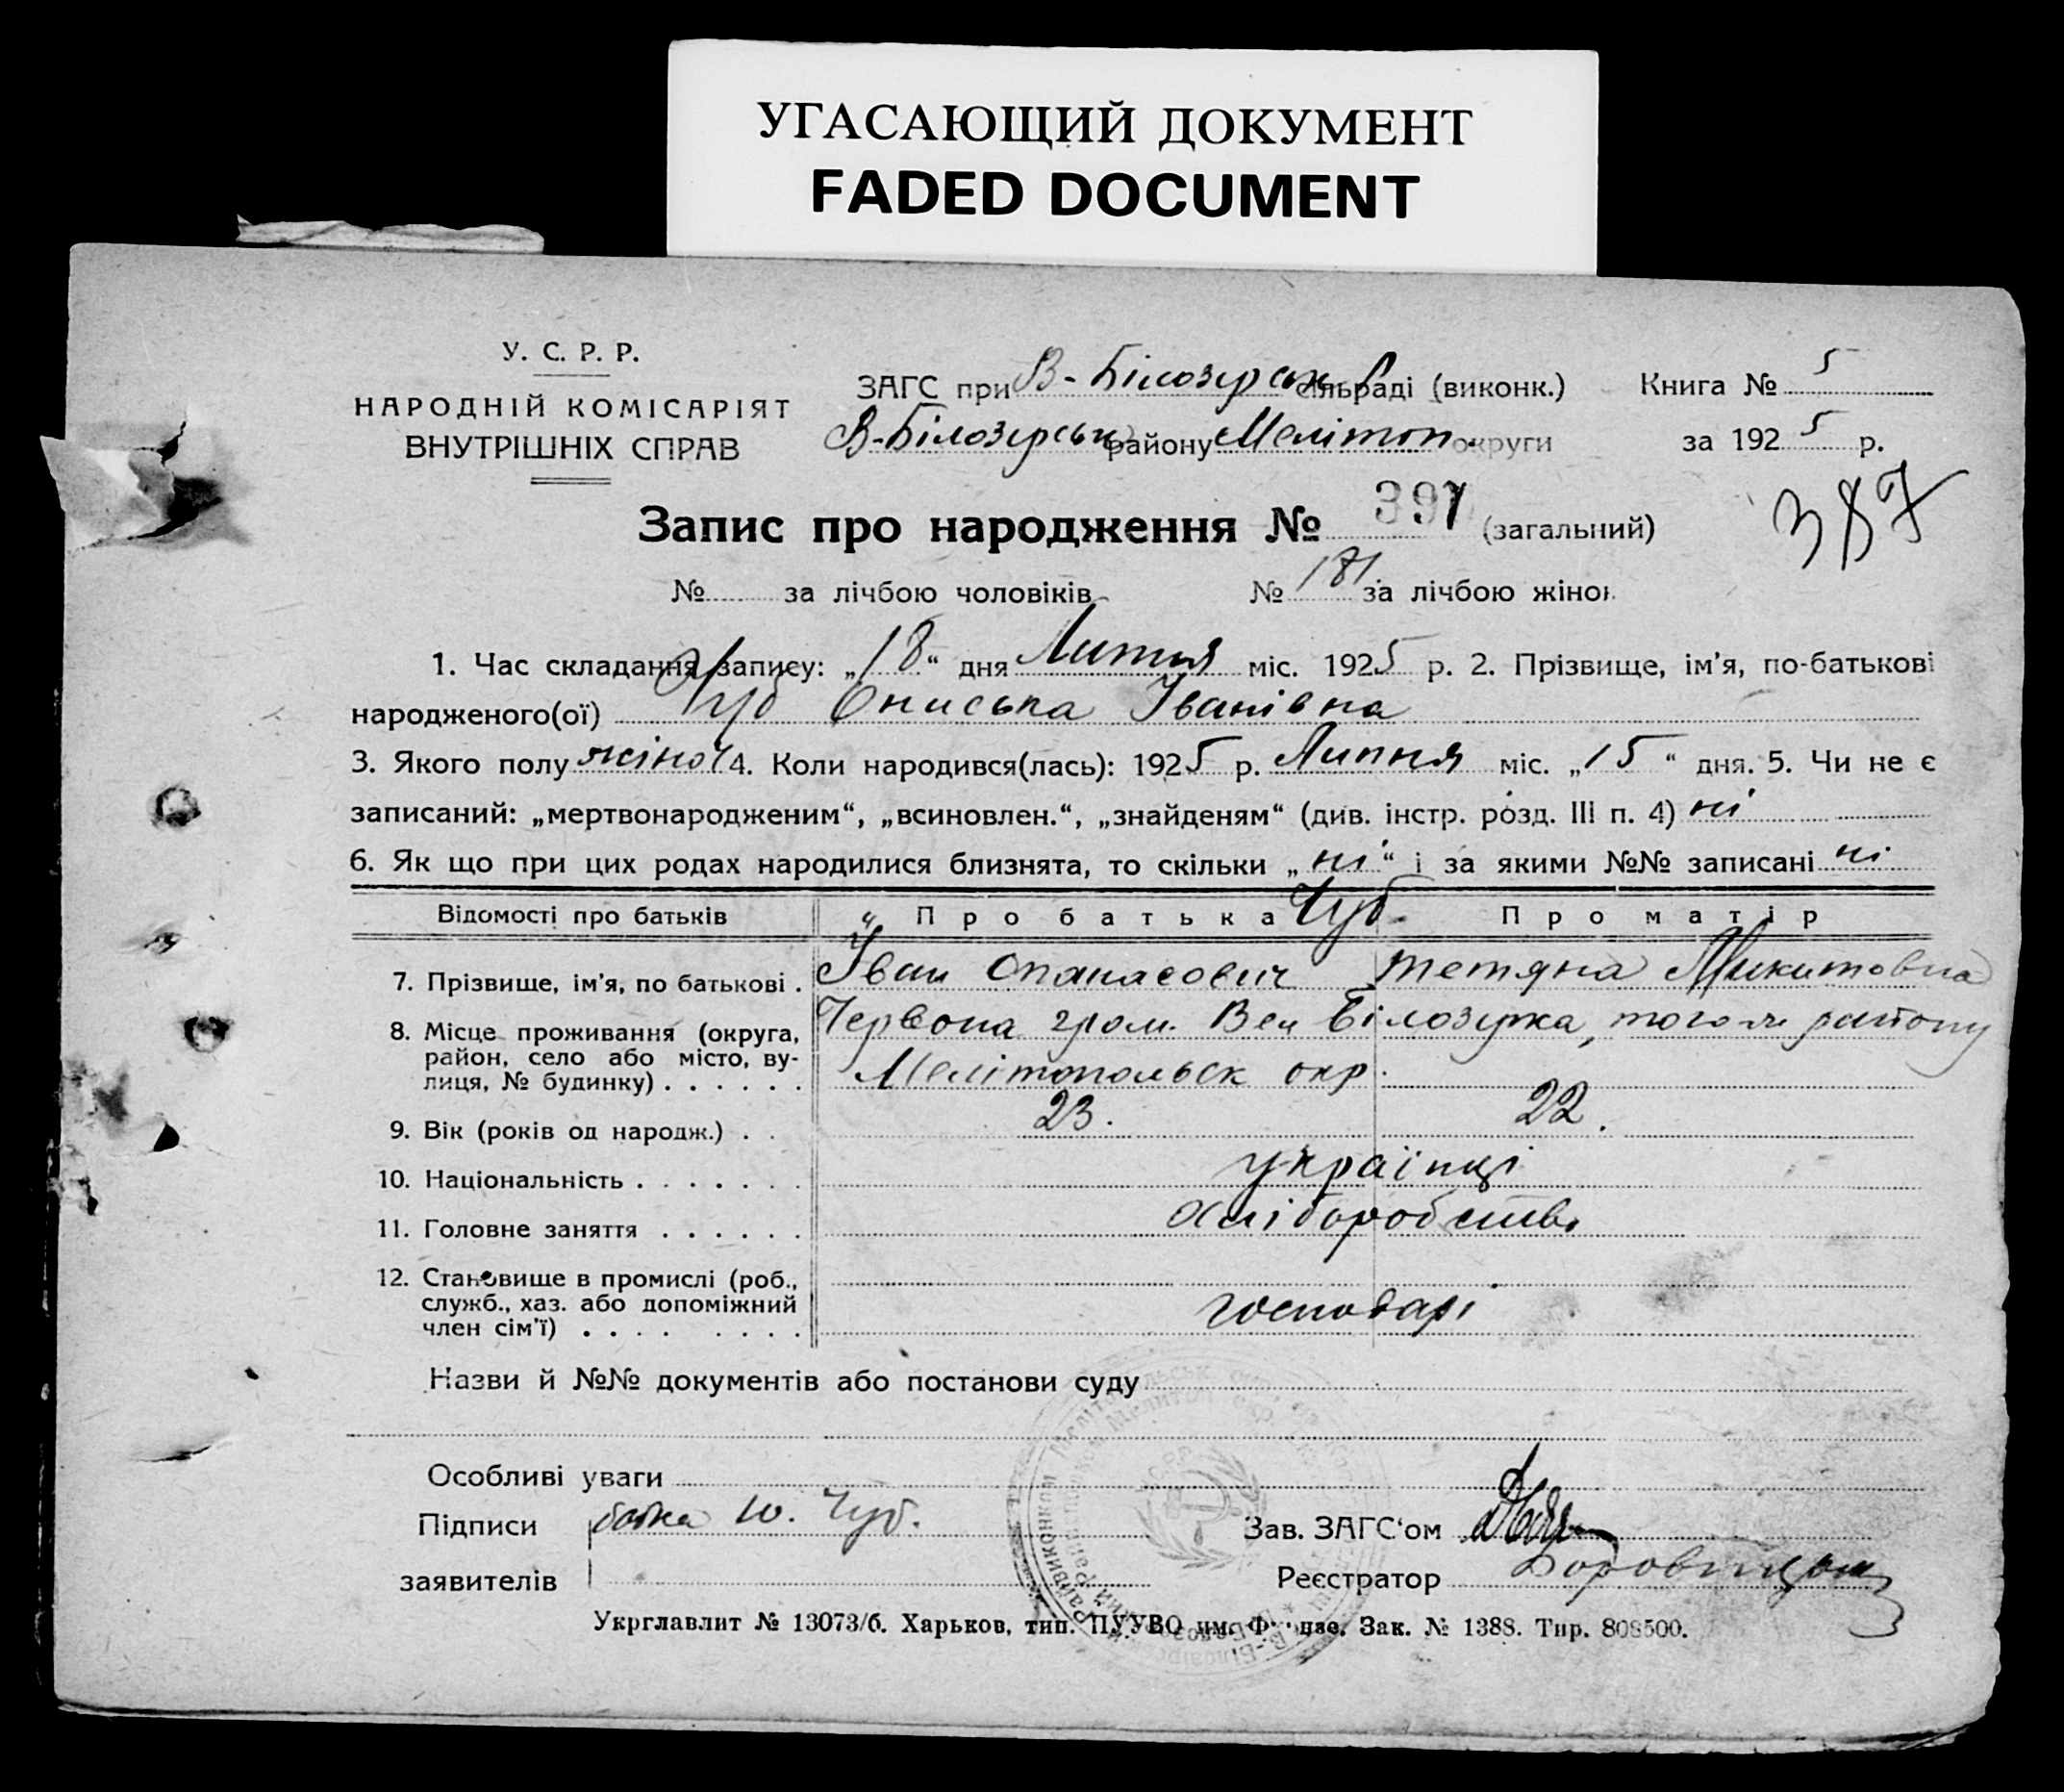 УГАСАЮЩИЙ ДОКУМЕНТ
FADED DOCUMENT
У. С. Р. Р.
НАРОДНІЙ КОМІСАРІЯТ
ВНУТРІШНІХ СПРАВ
ЗАГС при В-Білозерськ сільраді (виконк.) Книга № 5
В-Білозерськ району Мелітоп. округи за 1925 р.
Запис про народження № 391 (загальний)
387
№ за лічбою чоловіків № 181 за лічбою жінок
1. Час складання запису: „18“ дня Липня міс. 1925 р. 2. Прізвище, ім'я, по-батькові
народженого(ої) Чуб Ониська Іванівна
3. Якого полу жіноч 4. Коли народився(лась): 1925 р. Липня міс. „15“ дня. 5. Чи не є
записаний: „мертвонародженим“, „всиновлен.“, „знайденям“ (див. інстр. розд. III п. 4) ні
6. Як що при цих родах народилися близнята, то скільки „ні“ і за якими №№ записані ні
Відомості про батьків Про батька Чуб Про матір
7. Прізвище, ім'я, по батькові . Іван Опанасович Тетяна Микитовна
8. Місце проживання (округа, Червона гром. Вел Білозерка, того ж району
район, село або місто, ву-
лиця, № будинку) . . . . . . Мелітопольск окр.
9. Вік (років од народж.) . . 23. 22.
10. Національність . . . . . . . українці
11. Головне заняття . . . . . . хліборобство
12. Становище в промислі (роб.,
служб., хаз. або допоміжний
член сім'ї) . . . . . . . . господарі
Назви й №№ документів або постанови суду
Особливі уваги
Підписи батка Ю. Чуб. Зав. ЗАГС'ом
заявителів Реєстратор
Укрглавлит № 13073/б. Харьков, тип. ПУУВО им. Фрунзе. Зак. № 1388. Тир. 808500.